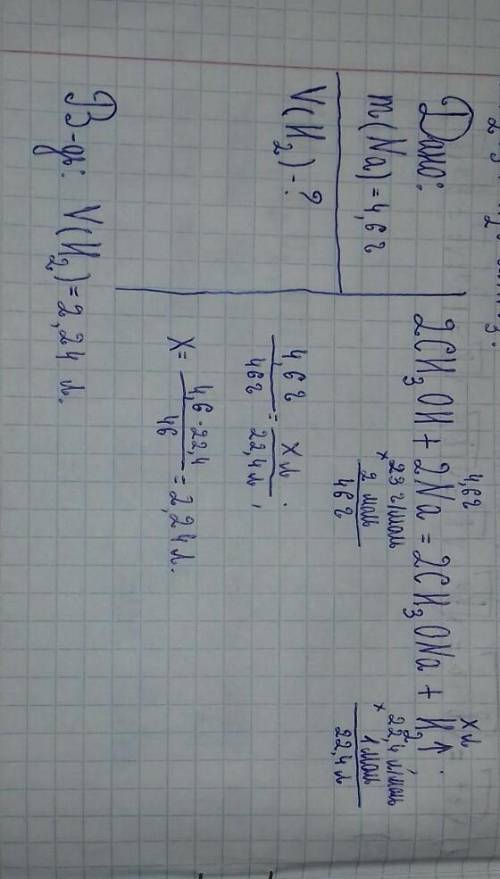 Дано:
m(Na)=4,6г
V(H₂)-?
4,6г
xл
2CH₃OH + 2Na = 2CH₃ONa + H₂↑.
× 23 г/моль
2 моль
46г
× 22,4 л/моль
1 моль
22,4 л
4,6г / 46г = xл / 22,4л ;
X = 4,6·22,4 / 46 = 2,24л.
В-дь: V(H₂)=2,24 л.